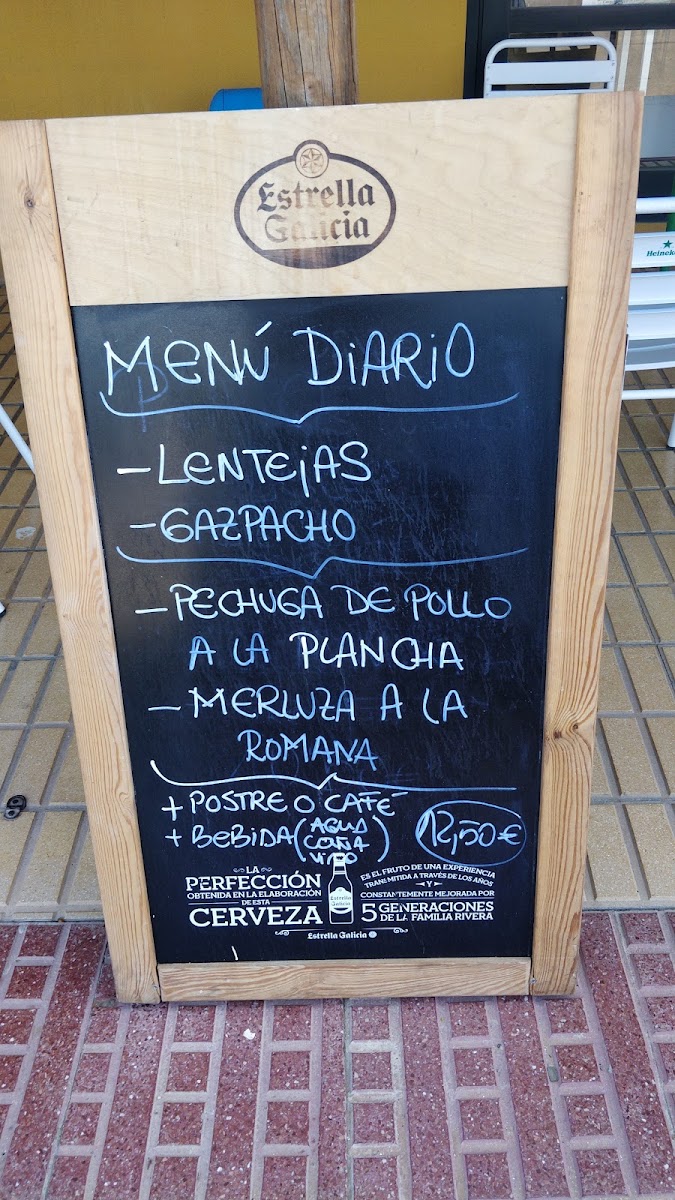 Estrella
Galicia
MENÚ DIARIO
- LENTEJAS
- GAZPACHO
- PECHUGA DE POLLO
A LA PLANCHA
- MERLUZA A LA
ROMANA
+ POSTRE O CAFÉ
+ BEBIDA (AGUA
CAÑA
VINO)
12,50€
LA
PERFECCIÓN
OBTENIDA EN LA ELABORACIÓN
DE ESTA
CERVEZA
Estrella
Galicia
ES EL FRUTO DE UNA EXPERIENCIA
TRANSMITIDA A TRAVÉS DE LOS AÑOS
Y
CONSTANTEMENTE MEJORADA POR
5 GENERACIONES
DE LA FAMILIA RIVERA
Estrella Galicia